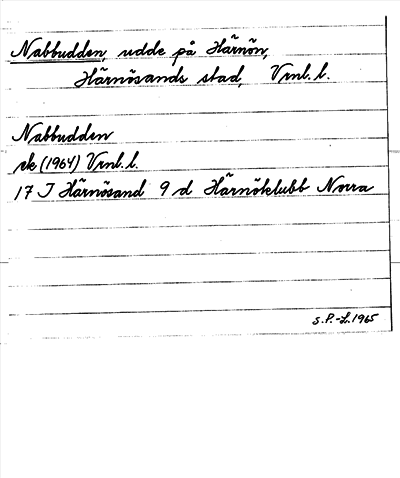 Nabbudden, udde på Härnön,
Härnösands stad, Vrnl. l.
Nabbudden
ek (1964) Vrnl. l.
17 J Härnösand 9 d Härnöklubb Norra
S.P.-L. 1965